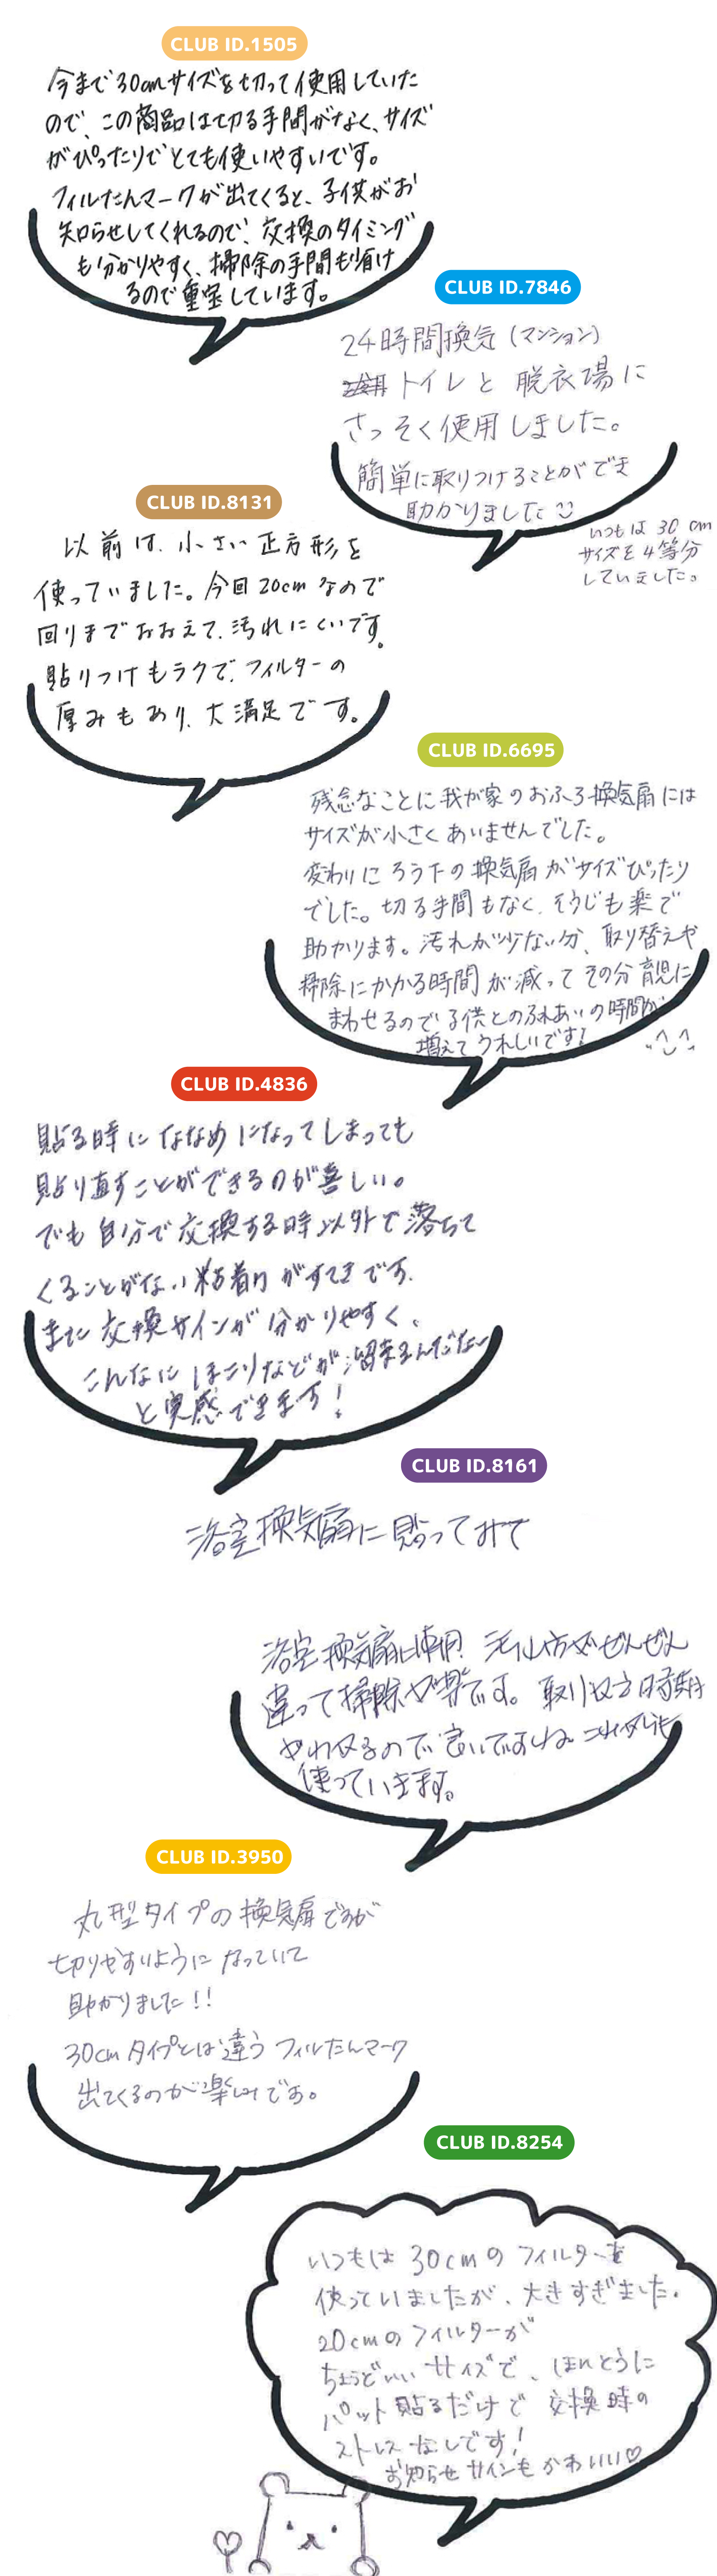 CLUB ID.1505
今まで30cmサイズを切って使用していた
ので、この商品は切る手間がなく、サイズ
がぴったりでとても使いやすいです。
フィルたんマークが出てくると、子供がお
知らせしてくれるので、交換のタイミング
も分かりやすく、掃除の手間も省け
るので重宝しています。
CLUB ID.7846
24時間換気(マンション)
トイレと脱衣場に
さっそく使用しました。
簡単に取りつけることができ
助かりました
いつもは30cm
サイズを4等分
していました。
CLUB ID.8131
以前は、小さい正方形を
使っていました。今回20cmなので
回りまでおおえて、汚れにくいです。
貼りつけもラクで、フィルターの
厚みもあり、大満足です。
CLUB ID.6695
残念なことに我が家のおふろ換気扇には
サイズが小さくあいませんでした。
変わりにろう下の換気扇がサイズぴったり
でした。切る手間もなく、そうじも楽で
助かります。汚れが少ない分、取り替えや
掃除にかかる時間が減ってその分育児に
まわせるので子供とのふれあいの時間が
増えてうれしいです!
CLUB ID.4836
貼る時にななめになってしまっても
貼り直すことができるのが喜しい。
でも自分で交換する時以外で落ちて
くることがない粘着力がすてきです。
また交換サインが分かりやすく、
こんなにほこりなどが溜まるんだなー
と実感できます!
CLUB ID.8161
浴室換気扇に貼ってみて
浴室換気扇に使用 汚れ方がぜんぜん
違って掃除が楽です。取りかえ時期
がわかるので良いですね これからも
使っていきます。
CLUB ID.3950
丸型タイプの換気扇ですが
切りやすいようになっていて
助かりました!!
30cmタイプとは違うフィルたんマーク
出てくるのが楽しみです。
CLUB ID.8254
いつもは30cmのフィルターを
使っていましたが、大きすぎました。
20cmのフィルターが
ちょうどいいサイズで、ほんとうに
パット貼るだけで交換時の
ストレスなしです!
お知らせサインもかわいい♡